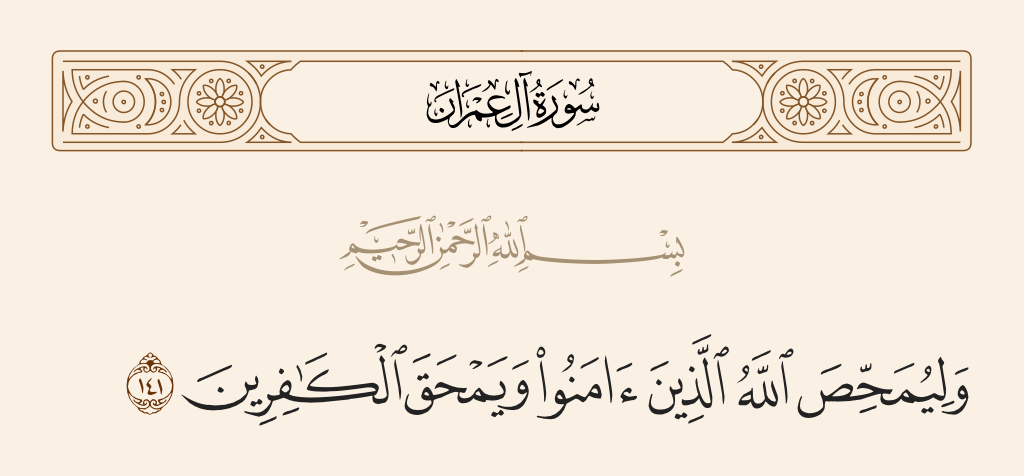 سُورَةُ آلِ عِمْرَان
بِسْمِ ٱللَّهِ ٱلرَّحْمَٰنِ ٱلرَّحِيمِ
وَلِيُمَحِّصَ ٱللَّهُ ٱلَّذِينَ ءَامَنُوا۟ وَيَمْحَقَ ٱلْكَـٰفِرِينَ ١٤١